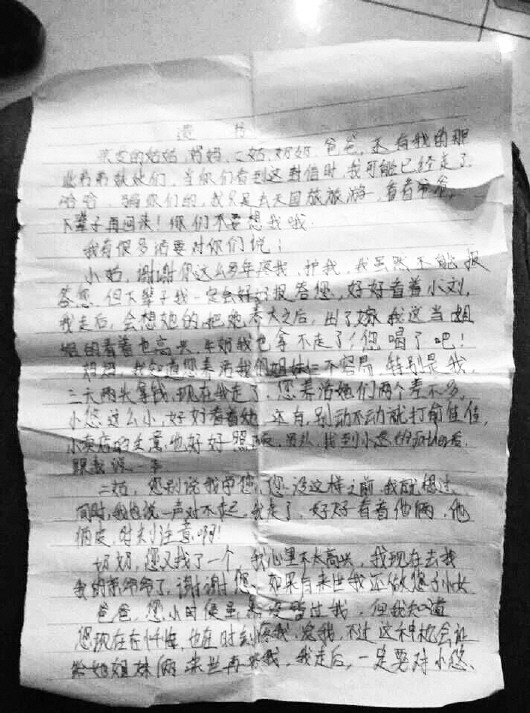 遗 书
亲爱的姑姑，妈妈，二姑，奶奶，爸爸，还有我的那
些弟弟妹妹们，当你们看到这封信时，我可能已经走了
哈哈，骗你们的，我只是去天国旅旅游，看看爷爷，
下辈子再回来！你们不要想我哦！
我有很多话要对你们说！
小姑，谢谢您这么多年疼我，护我，我虽然不能报
答您，但下辈子我一定会好好报答您，好好看着小刘，
我走后，会想她的，把她养大之后，出了嫁，我这当姐
姐的看着也高兴，牛奶我也拿不走了，你喝了吧！
妈妈，我知道您养活我们姐妹三不容易，特别是我，
三天两头拿钱，现在我走了，您养活她们两个差不多，
小您这么小，好好看着她，还有，别动不动就打俺佳佳，
小卖店的生意也好好照顾，
二姑，您别说我学您，您没这样之前，我就想过，
同时，我也说一声对不起，我走了，好好看着他俩，他
俩皮，时刻注意啊！
奶奶，您又找了一个，我心里不太高兴，我现在去找
我的爷爷了，谢谢您，如果有来世我还做您
爸爸，您小时候虽 过我，但我知道
您现在在忏悔，也在时刻疼我，爱我，不过这种机会让
给姐姐妹俩，来世再 我，我走后，一定要对小您、